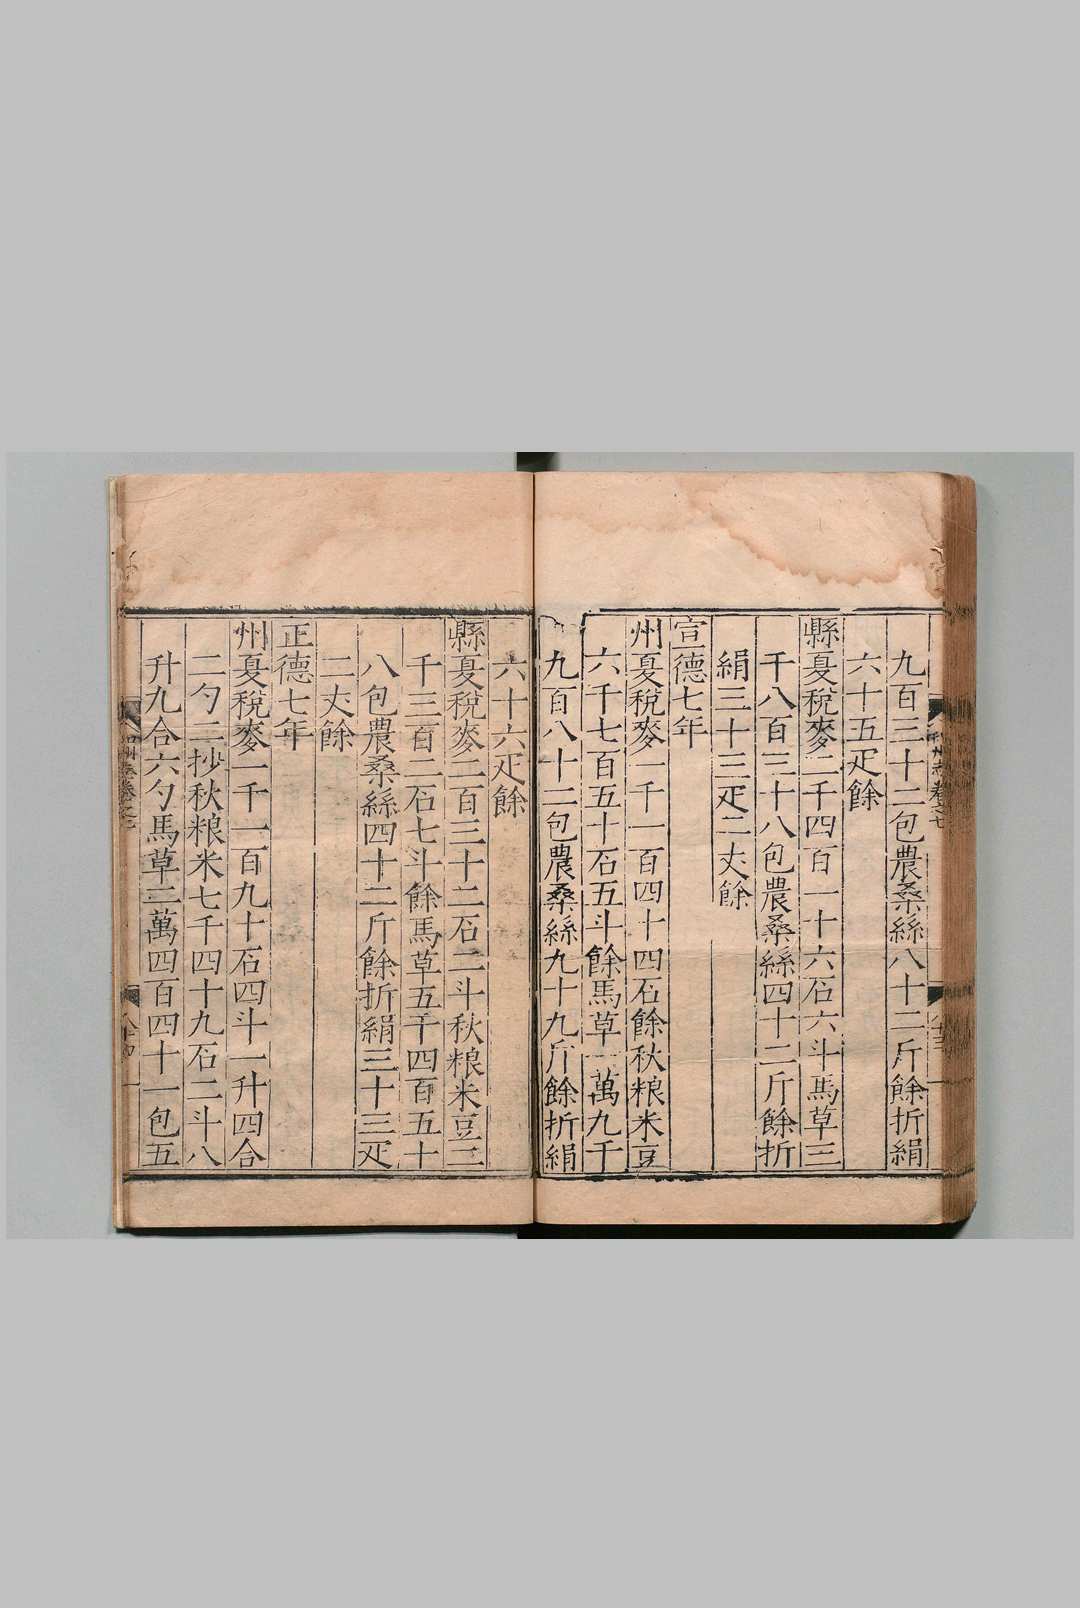 和州志卷之七
八十三
九百三十二包農桑絲八十二斤餘折絹
六十五疋餘
縣夏稅麥二千四百一十六石六斗馬草三
千八百三十八包農桑絲四十二斤餘折
絹三十三疋二丈餘
宣德七年
州夏稅麥一千一百四十四石餘秋粮米豆
六千七百五十石五斗餘馬草一萬九千
九百八十二包農桑絲九十九斤餘折絹
六十六疋餘
縣夏稅麥二百三十二石二斗秋粮米豆二
千三百二石七斗餘馬草五千四百五十
八包農桑絲四十二斤餘折絹三十三疋
二丈餘
正德七年
州夏稅麥一千一百九十石四斗一升四合
二勺二抄秋粮米七千四十九石二斗八
升九合六勺馬草三萬四百四十一包五
和州志卷之七
八十四